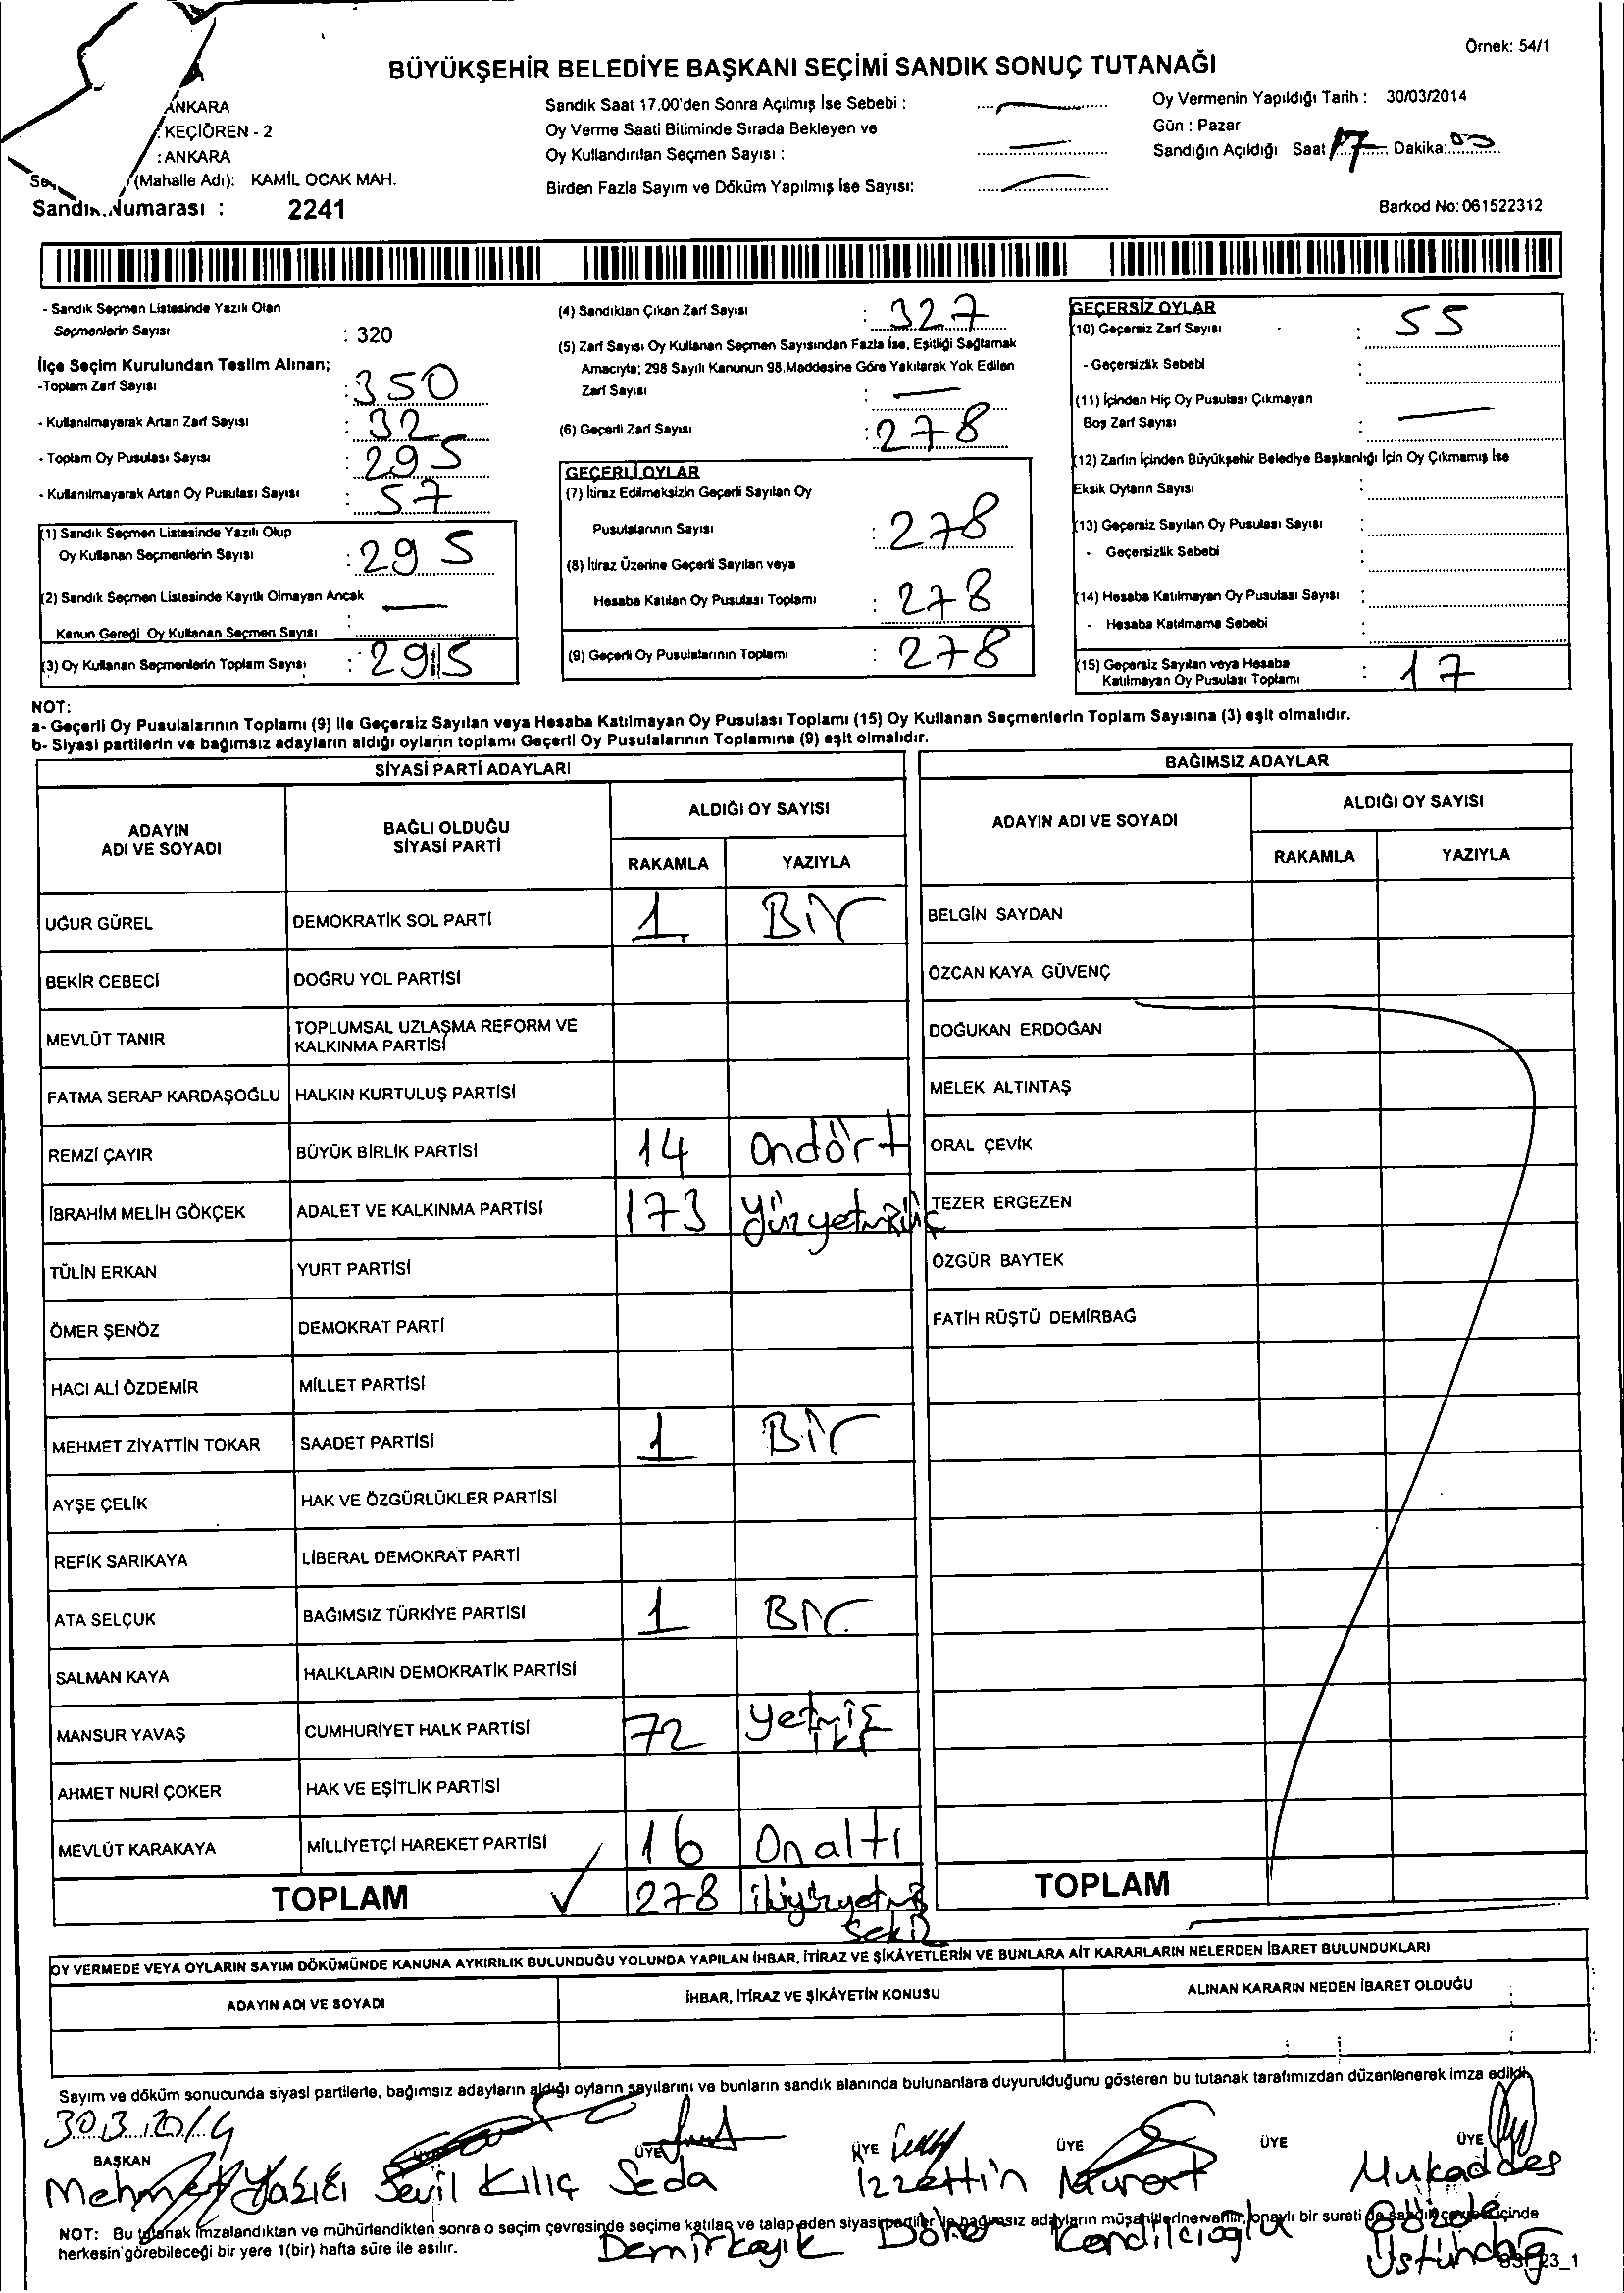 Örnek: 54/1
BÜYÜKŞEHİR BELEDİYE BAŞKANI SEÇİMİ SANDIK SONUÇ TUTANAĞI
ANKARA
KEÇİÖREN - 2
: ANKARA
(Mahalle Adı): KAMİL OCAK MAH.
Numarası : 2241
Sandık Saat 17.00'den Sonra Açılmış İse Sebebi :
Oy Verme Saati Bitiminde Sırada Bekleyen ve
Oy Kullandırılan Seçmen Sayısı :
Birden Fazla Sayım ve Döküm Yapılmış İse Sayısı:
Oy Vermenin Yapıldığı Tarih : 30/03/2014
Gün : Pazar
Sandığın Açıldığı Saat 17 Dakika: 00
Barkod No: 061522312
- Sandık Seçmen Listesinde Yazılı Olan
Seçmenlerin Sayısı : 320
İlçe Seçim Kurulundan Teslim Alınan;
-Toplam Zarf Sayısı : 350
- Kullanılmayarak Artan Zarf Sayısı : 32
- Toplam Oy Pusulası Sayısı : 295
- Kullanılmayarak Artan Oy Pusulası Sayısı : 57
(1) Sandık Seçmen Listesinde Yazılı Olup
Oy Kullanan Seçmenlerin Sayısı : 295
(2) Sandık Seçmen Listesinde Kayıtlı Olmayan Ancak
Kanun Gereği Oy Kullanan Seçmen Sayısı :
(3) Oy Kullanan Seçmenlerin Toplam Sayısı : 295
(4) Sandıktan Çıkan Zarf Sayısı : 327
(5) Zarf Sayısı Oy Kullanan Seçmen Sayısından Fazla İse, Eşitliği Sağlamak
Amacıyla; 298 Sayılı Kanunun 98.Maddesine Göre Yakılarak Yok Edilen
Zarf Sayısı :
(6) Geçerli Zarf Sayısı : 278
GEÇERLİ OYLAR
(7) İtiraz Edilmeksizin Geçerli Sayılan Oy
Pusulalarının Sayısı : 278
(8) İtiraz Üzerine Geçerli Sayılan veya
Hesaba Katılan Oy Pusulası Toplamı : 278
(9) Geçerli Oy Pusulalarının Toplamı : 278
GEÇERSİZ OYLAR
(10) Geçersiz Zarf Sayısı : 55
- Geçersizlik Sebebi :
(11) İçinden Hiç Oy Pusulası Çıkmayan
Boş Zarf Sayısı :
(12) Zarfın İçinden Büyükşehir Belediye Başkanlığı İçin Oy Çıkmamış İse
Eksik Oyların Sayısı :
(13) Geçersiz Sayılan Oy Pusulası Sayısı :
- Geçersizlik Sebebi :
(14) Hesaba Katılmayan Oy Pusulası Sayısı :
- Hesaba Katılmama Sebebi :
(15) Geçersiz Sayılan veya Hesaba
Katılmayan Oy Pusulası Toplamı : 17
NOT:
a- Geçerli Oy Pusulalarının Toplamı (9) ile Geçersiz Sayılan veya Hesaba Katılmayan Oy Pusulası Toplamı (15) Oy Kullanan Seçmenlerin Toplam Sayısına (3) eşit olmalıdır.
b- Siyasi partilerin ve bağımsız adayların aldığı oyların toplamı Geçerli Oy Pusulalarının Toplamına (9) eşit olmalıdır.
SİYASİ PARTİ ADAYLARI
ADAYIN ADI VE SOYADI
BAĞLI OLDUĞU SİYASİ PARTİ
ALDIĞI OY SAYISI
RAKAMLA YAZIYLA
UĞUR GÜREL DEMOKRATİK SOL PARTİ 1 Bir
BEKİR CEBECİ DOĞRU YOL PARTİSİ
MEVLÜT TANIR TOPLUMSAL UZLAŞMA REFORM VE KALKINMA PARTİSİ
FATMA SERAP KARDAŞOĞLU HALKIN KURTULUŞ PARTİSİ
REMZİ ÇAYIR BÜYÜK BİRLİK PARTİSİ 14 Ondört
İBRAHİM MELİH GÖKÇEK ADALET VE KALKINMA PARTİSİ 173 yüzyetmişüç
TÜLİN ERKAN YURT PARTİSİ
ÖMER ŞENÖZ DEMOKRAT PARTİ
HACI ALİ ÖZDEMİR MİLLET PARTİSİ
MEHMET ZİYATTİN TOKAR SAADET PARTİSİ 1 Bir
AYŞE ÇELİK HAK VE ÖZGÜRLÜKLER PARTİSİ
REFİK SARIKAYA LİBERAL DEMOKRAT PARTİ
ATA SELÇUK BAĞIMSIZ TÜRKİYE PARTİSİ 1 Bir
SALMAN KAYA HALKLARIN DEMOKRATİK PARTİSİ
MANSUR YAVAŞ CUMHURİYET HALK PARTİSİ 72 yetmiş iki
AHMET NURİ ÇOKER HAK VE EŞİTLİK PARTİSİ
MEVLÜT KARAKAYA MİLLİYETÇİ HAREKET PARTİSİ 16 Onaltı
TOPLAM 278 ikiyüzyetmiş sekiz
BAĞIMSIZ ADAYLAR
ADAYIN ADI VE SOYADI
ALDIĞI OY SAYISI
RAKAMLA YAZIYLA
BELGİN SAYDAN
ÖZCAN KAYA GÜVENÇ
DOĞUKAN ERDOĞAN
MELEK ALTINTAŞ
ORAL ÇEVİK
TEZER ERGEZEN
ÖZGÜR BAYTEK
FATİH RÜŞTÜ DEMİRBAĞ
TOPLAM
OY VERMEDE VEYA OYLARIN SAYIM DÖKÜMÜNDE KANUNA AYKIRILIK BULUNDUĞU YOLUNDA YAPILAN İHBAR, İTİRAZ VE ŞİKÂYETLERİN VE BUNLARA AİT KARARLARIN NELERDEN İBARET BULUNDUKLARI
ADAYIN ADI VE SOYADI İHBAR, İTİRAZ VE ŞİKÂYETİN KONUSU ALINAN KARARIN NEDEN İBARET OLDUĞU
Sayım ve döküm sonucunda siyasi partilerle, bağımsız adayların aldığı oyların sayılarını ve bunların sandık alanında bulunanlara duyurulduğunu gösteren bu tutanak tarafımızdan düzenlenerek imza edildi.
30.3.2014
BAŞKAN ÜYE ÜYE ÜYE ÜYE ÜYE
Mehmet Yazıcı Sevil Kılıç Seda İzzettin Murat Mukaddes
NOT: Bu tutanak imzalandıktan ve mühürlendikten sonra o seçim çevresinde seçime katılan ve talep eden siyasi partiler ile bağımsız adayların müşahitlerine verilir, onaylı bir sureti de sandık çevresi içinde
herkesin görebileceği bir yere 1(bir) hafta süre ile asılır.
Demirkayık Döner Kandilcioğlu Gözde Üstündağ